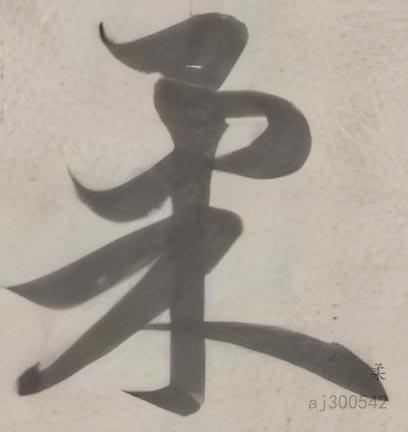 柔
柔
aj300542